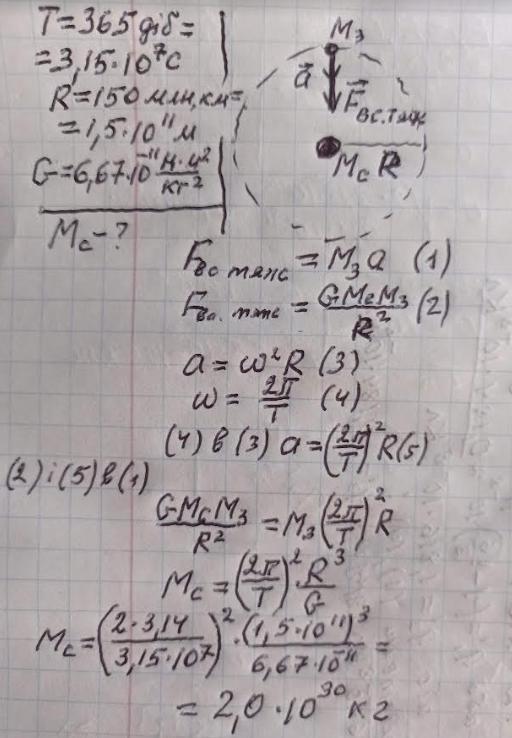 T=365 діб=
=3,15·10⁷с
R=150 млн,км=
=1,5·10¹¹м
G=6,67·10⁻¹¹ Н·м²/кг²
Mс-?
Mз
a⃗
F⃗вс.тяж
Mс R
Fвс тяж = Mз a (1)
Fвс. тяж = GMсMз/R² (2)
a = ω²R (3)
ω = 2π/T (4)
(4) в (3) a = (2π/T)² R (5)
(2) і (5) в (1)
GMсMз/R² = Mз (2π/T)² R
Mс = (2π/T)² · R³/G
Mс = (2·3,14/3,15·10⁷)² · (1,5·10¹¹)³/6,67·10⁻¹¹ =
= 2,0·10³⁰ кг